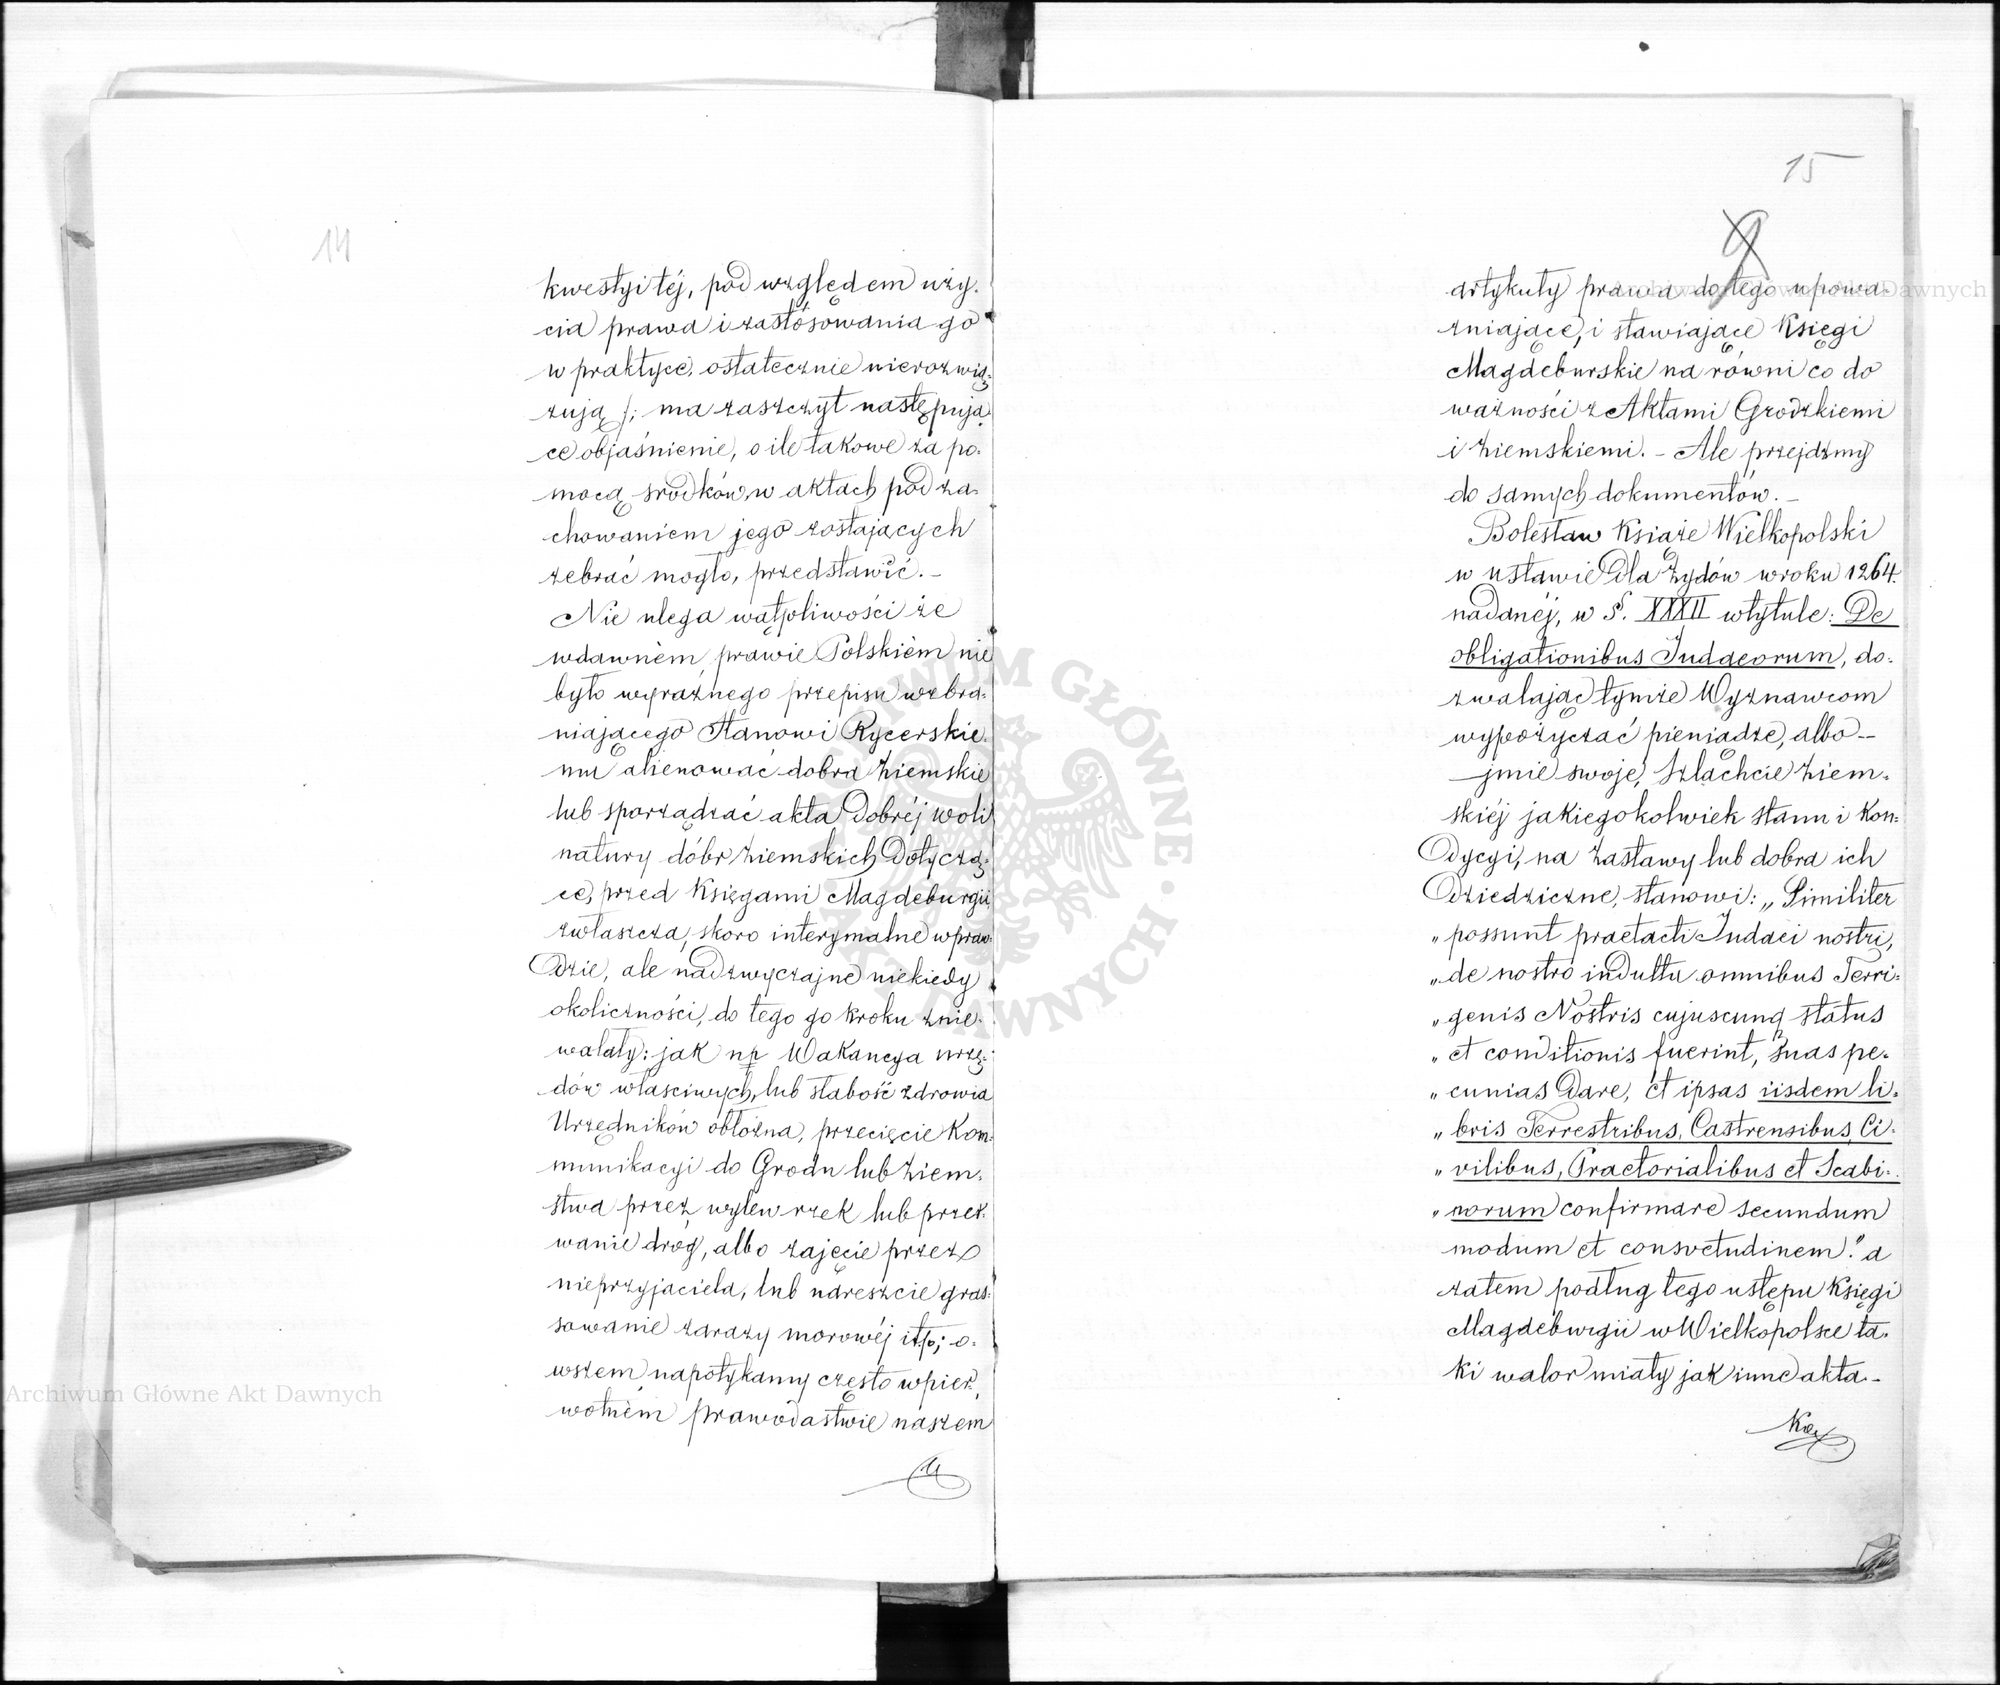 14
kwestyi téj, pod względem uży-
cia prawa i zastósowania go
w praktyce, ostatecznie nierozwią-
zują /; ma zaszczyt następują-
ce objaśnienie, o ile takowe za po-
mocą srodków, w aktach pod za-
chowaniem jego zostających
zebrać mogło, przedstawić. –
Nie ulega wątpliwości że
w dawném prawie Polskiém nie
było wyraźnego przepisu wzbra-
niającego Stanowi Rycerskie-
mu alienować dobra ziemskie
lub sporządzać akta dobréj woli
natury dóbr ziemskich dotyczą-
ce, przed Księgami Magdeburgii,
zwłaszcza, skoro interymalne wpraw-
dzie, ale nadzwyczajne niekiedy
okoliczności, do tego go kroku znie-
walały: jak np Wakancya urzę-
dów własciwych, lub słabość zdrowia
Urzędników obłożna, przecięcie Kom-
munikacyi do Grodu lub ziem-
stwa przez wylew rzek lub przer-
wanie dróg, albo zajęcie przez
nieprzyjaciela, lub nareszcie gras-
sowanie zarazy morowéj itp; o-
wszem napotykamy często w pier-
wotném prawodastwie naszem
15
9
artykuły prawa do tego upowa-
żniające, i stawiające Księgi
Magdeburskie na równi co do
ważności z Aktami Grodzkiemi
i ziemskiemi. – Ale przejdzmy
do samych dokumentów. –
Bolesław Książe Wielkopolski
w ustawie dla Żydów w roku 1264.
nadanéj, w §. XXXII w tytule: De
obligationibus Judaeorum, do-
zwalając tymże Wyznawcom
wypożyczać pieniądze, albo –
jmie swoje, Szlachcie ziem-
skiéj jakiegokolwiek stanu i Kon-
dycyi, na zastawy lub dobra ich
dziedziczne, stanowi: „Similiter
„possunt praetacti Judaei nostri,
„de nostro indultu omnibus Terri-
„genis Nostris cujuscunq status
„et conditionis fuerint, suas pe-
„cunias dare, et ipsas iisdem li-
„bris Terrestribus, Castrensibus, Ci-
„vilibus, Praetorialibus et Scabi-
„norum confirmare secundum
modum et consvetudinem." a
zatem podług tego ustępu Księgi
Magdeburgii w Wielkopolsce ta-
ki walor miały jak inne akta –
ARCHIWUM GŁÓWNE AKT DAWNYCH
Archiwum Główne Akt Dawnych
Archiwum Główne Akt Dawnych